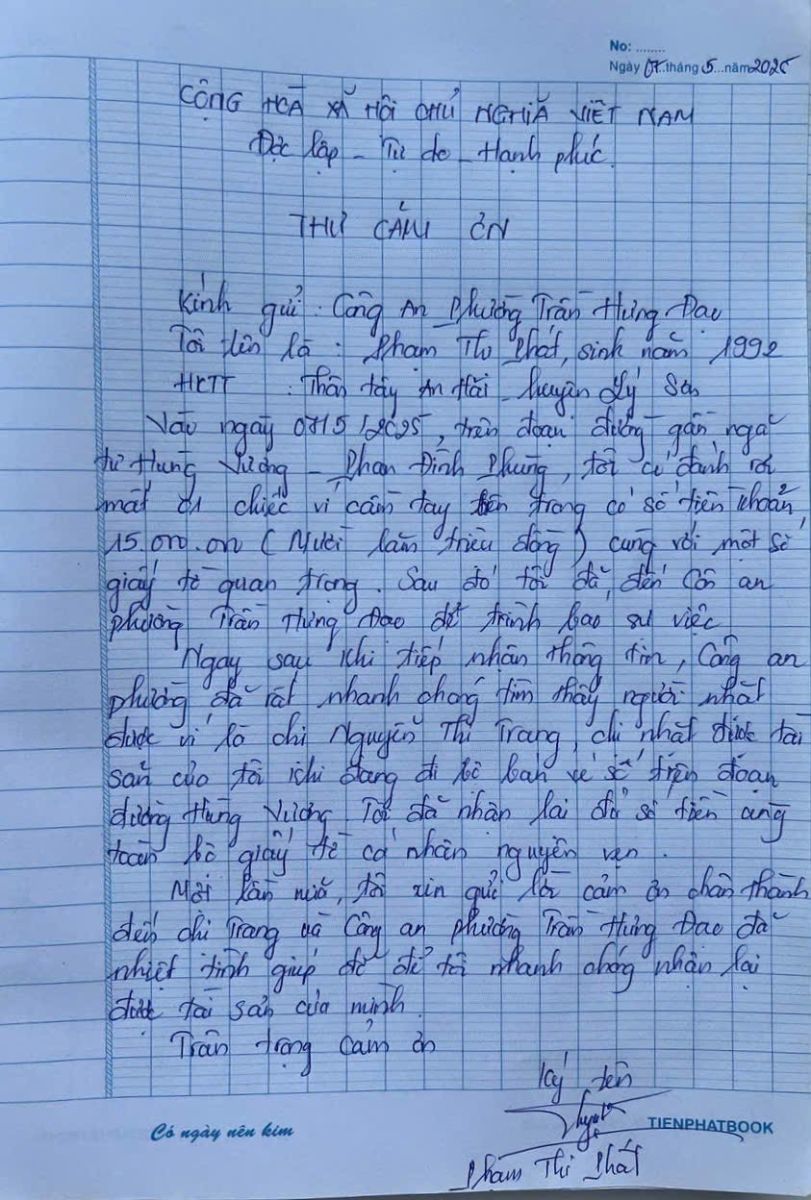 No: ........
Ngày 07..tháng 5...năm 2025
CỘNG HÒA XÃ HỘI CHỦ NGHĨA VIỆT NAM
Độc lập - Tự do - Hạnh phúc.
THƯ CẢM ƠN
Kính gửi : Công An Phường Trần Hưng Đạo
Tôi tên là : Phạm Thị Phát, sinh năm 1992
HKTT : Thôn tây An Hải - huyện Lý Sơn
Vào ngày 07/5/2025, trên đoạn đường gần ngã
tư Hùng Vương - Phan Đình Phùng, tôi có đánh rơi
mất 01 chiếc ví cầm tay bên trong có số tiền khoản
15.000.000 (Mười lăm triệu đồng) cùng với một số
giấy tờ quan trọng. Sau đó tôi đã đến Côn an
phường Trần Hưng Đạo để trình báo sự việc
Ngay sau khi tiếp nhận thông tin, Công an
phường đã rất nhanh chóng tìm thấy người nhặt
được ví là chị Nguyễn Thị Trang, chị nhặt được tài
sản của tôi khi đang đi bộ bán vé số trên đoạn
đường Hùng Vương. Tôi đã nhận lại đủ số tiền cùng
toàn bộ giấy tờ cá nhân nguyên vẹn.
Một lần nữa, tôi xin gửi lời cảm ơn chân thành
đến chị Trang và Công an phường Trần Hưng Đạo đã
nhiệt tình giúp đỡ để tôi nhanh chóng nhận lại
được tài sản của mình.
Trân trọng cảm ơn
Ký tên
Phạm Thị Phát
Có ngày nên kim
TIENPHATBOOK